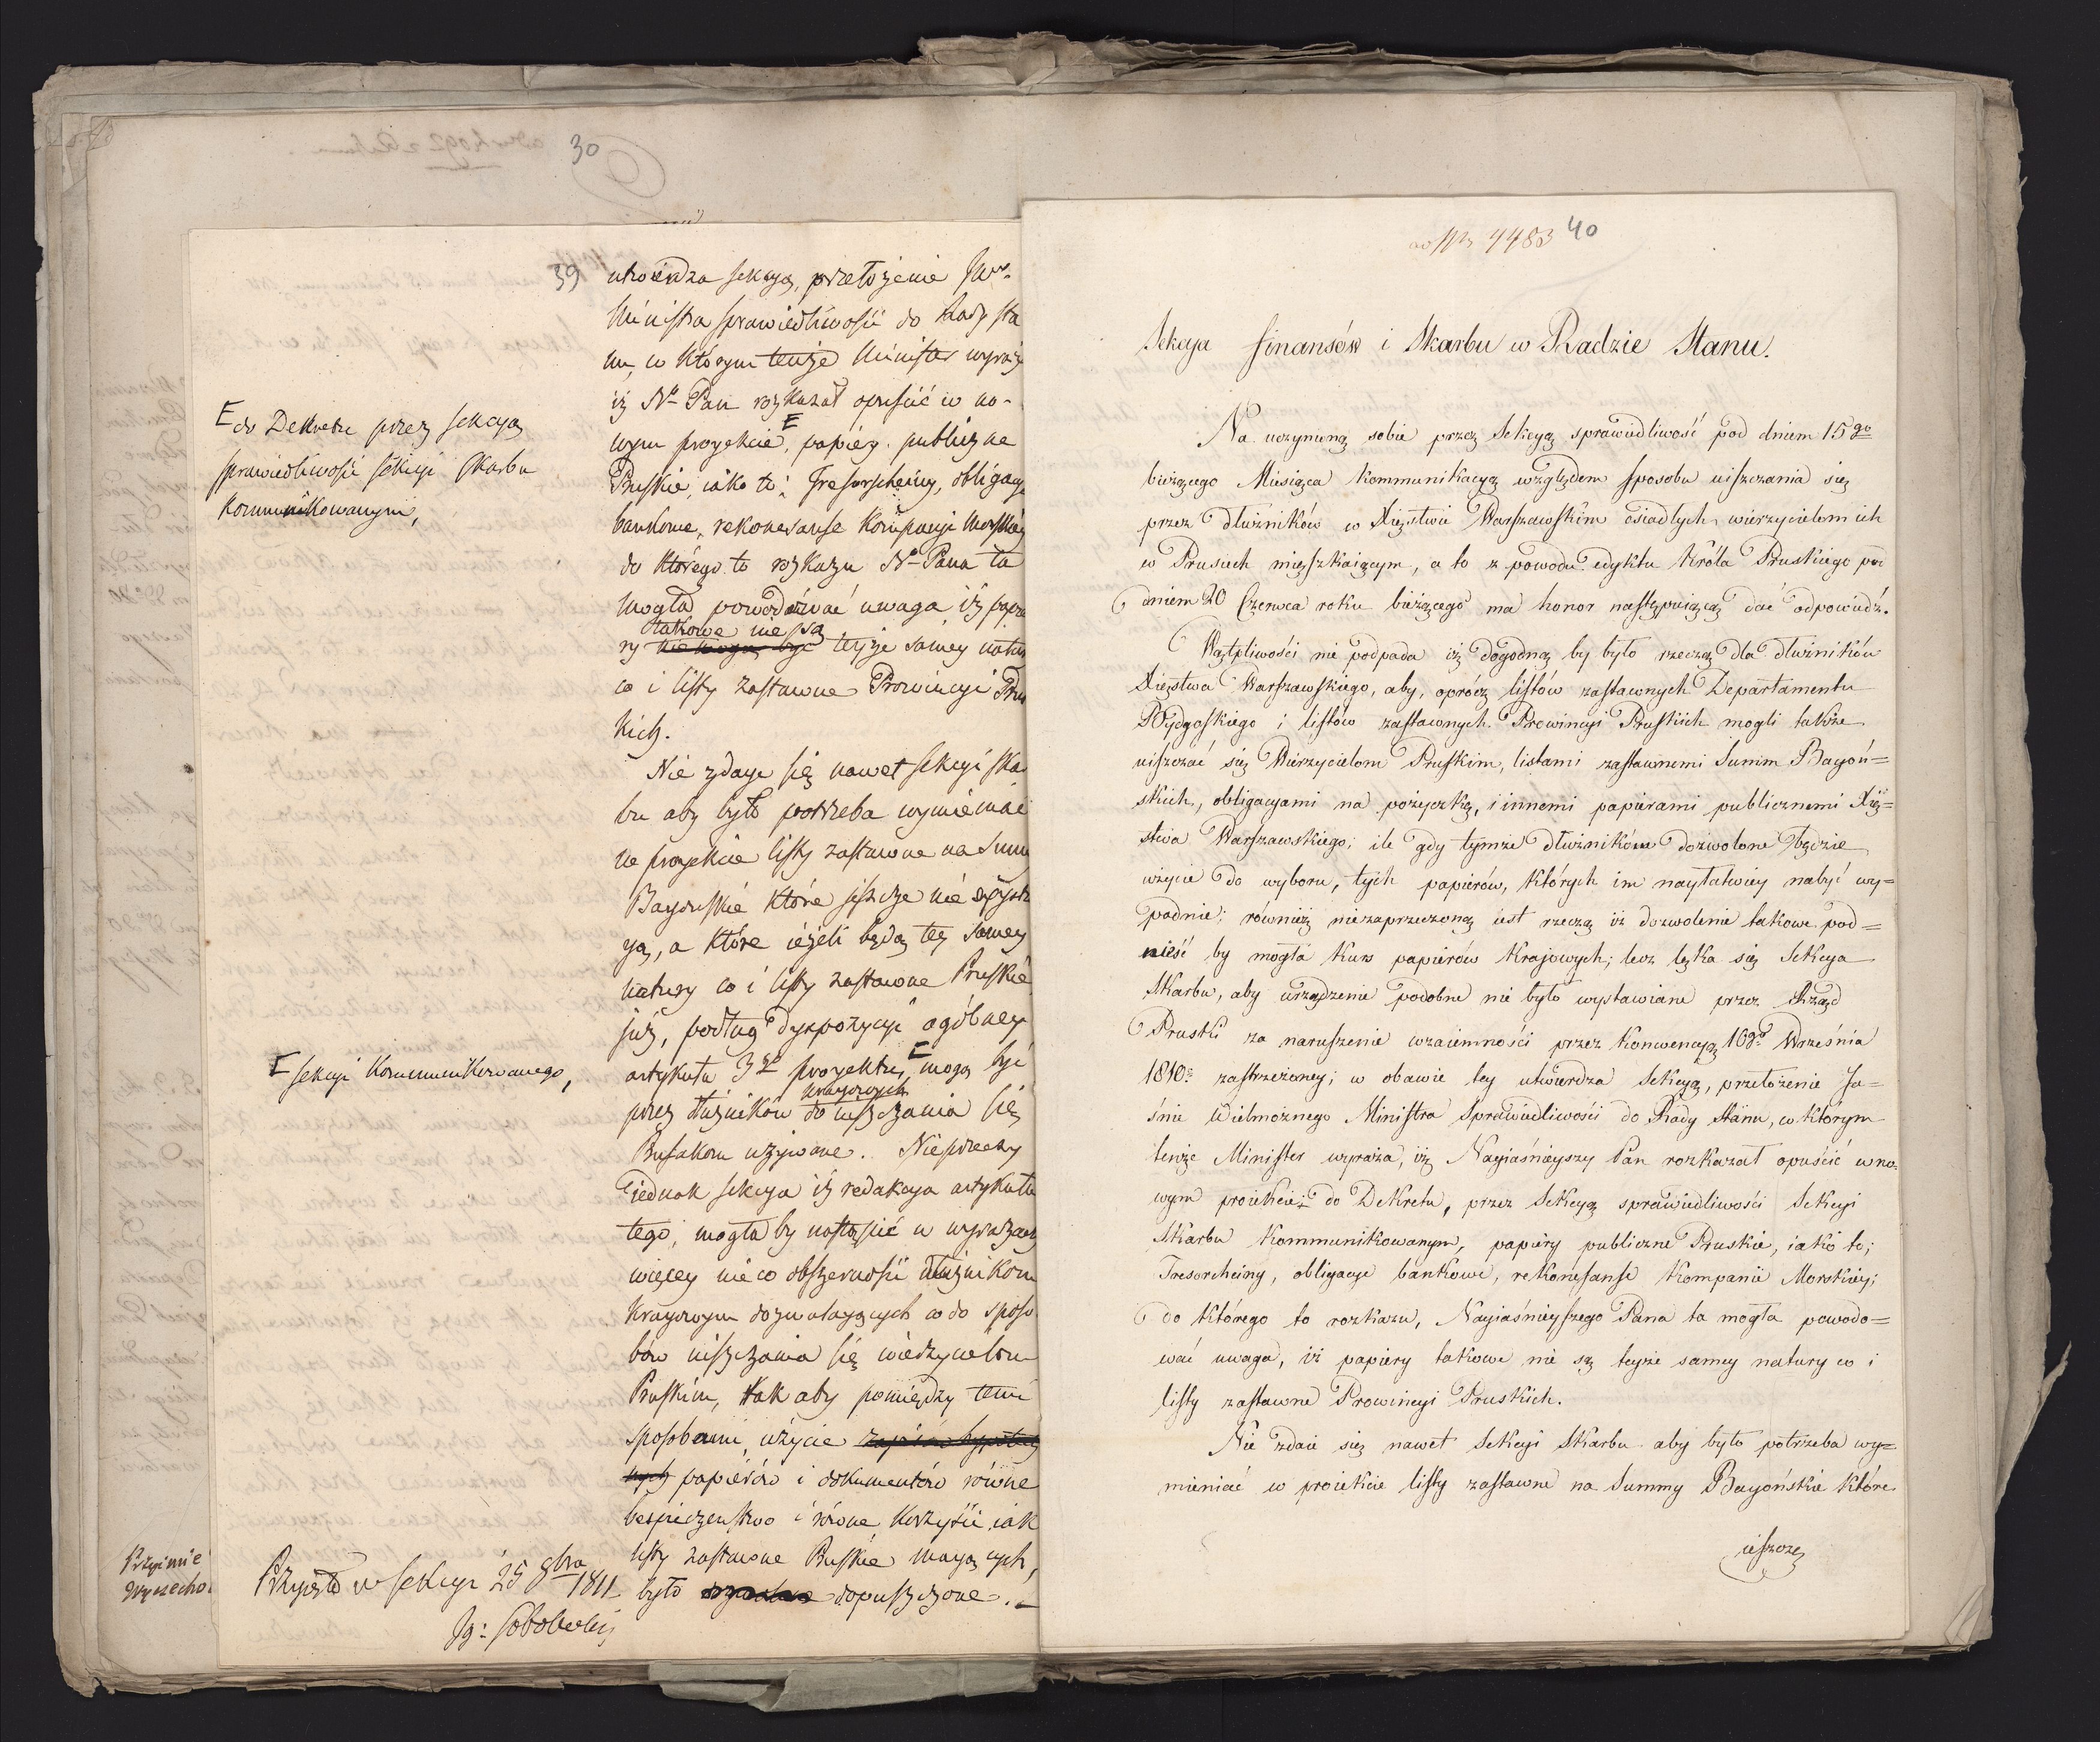 30
39
utwierdza sekcyą, przełożenie JWo
Ministra sprawiedliwości do Rady sta
nu, w którym tenże Minister wyraża
iż Nn Pan rozkazał opuścić w no-
wym proyekcie, papiery publiczne
Pruskie, iako to: Tresorscheiny, obligacye
bankowe, rekonesanse Kompanji Morskiey
do którego to rozkazu No Pana ta
mogła powodować uwaga iż papie
takowe nie są
ry nie mogą być teyże samey natury
co i listy zastawne Prowincyi Prus
kich.
Nie zdaye się nawet sekcyi ska
bu aby było potrzeba wymieniać
w proyekcie listy zastawne na Summy
Bayońskie które jeszcze nie
ją, a które ieżeli będą tey samey
natury co i listy zastawne Pruskie
już, podług dyspozycyi ogólney
artykułu 3go proyektu, mogą być
kraiowych
przez dłużników do uiszczania się
Prusakom używane. Nieprzeczy
iednak sekcya iż redakcya artykułu
tego, mogła by nastąpić w wyrazach
więcey nieco obszerności dłużnikom
krajowym dozwalaiących co do sposo
bów uiszczania się wierzycielom
Pruskim, tak aby pomiędzy temi
sposobami, użycie
papierów i dokumentów równe
bespieczeństwo i równe korzyści iak
listy zastawne Pruskie maiących,
było dopuszczone.
E do Dekretu przez sekcyą
sprawiedliwości sekcyi skarbu
kommunikowanym,
E sekcyi kommunikowanego,
Przyjęto w sekcyi 25 8bra 1811
Jg: Sobolewski
ad No 4483 40
Sekcya finansów i Skarbu w Radzie Stanu.
Na uczynioną sobie przez Sekcyą sprawiedliwość pod dniem 15go
bieżącego Miesiąca kommunikacyą względem sposobu uiszczania się
przez dłużników w Xięstwie Warszawskim osiadłych wierzycielom ich
w Prusiech mięszkaiącym, a to z powodu edyktu Króla Pruskiego pod
dniem 20 Czerwca roku bieżącego ma honor następuiącą dać odpowiedź.
Wątpliwości nie podpada iż dogodną by było rzeczą dla dłużników
Xięstwa Warszawskiego, aby, oprócz listów zastawnych Departamentu
Bydgoskiego i listów zastawnych Prowincyi Pruskich mogli także
uiszczać się Wierzycielom Pruskim, listami zastawnemi Summ Bayoń=
skich, obligacyami na pożyczkę, i innemi papierami publicznemi Xię=
stwa Warszawskiego; ile gdy tymże dłużnikom dozwolone będzie
użycie do wyboru, tych papierów, których im nayłatwiey nabyć wy=
padnie; również niezaprzeczoną iest rzeczą iż dozwolenie takowe pod=
nieść by mogła kurs papierów Krajowych; lecz lęka się Sekcya
Skarbu, aby urządzenie podobne nie było wystawiane przez Rząd
Pruski za naruszenie wzaiemności przez Konwencyą 10go Września
1810. zastrzeżoney; w obawie tey utwierdza Sekcyą, przełożenie Ja=
śnie Wielmożnego Ministra Sprawiedliwości do Rady Stanu, w którym
tenże Minister wyraża, iż Nayiaśnieyszy Pan rozkazał opuścić w no=
wym proiekcie do Dekretu, przez Sekcyą sprawiedliwości Sekcyi
Skarbu kommunikowanym, papiery publiczne Pruskie, iako to;
Tresorcheiny, obligacye bankowe, rekonesanse Kompanii Morskiey;
do którego to rozkazu, Nayiaśnieyszego Pana ta mogła powodo=
wać uwaga, iż papiery takowe nie są teyże samey natury co i
listy zastawne Prowincyi Pruskich.
Nie zdaie się nawet Sekcyi Skarbu aby było potrzeba wy=
mieniać w proiekcie listy zastawne na Summy Bayońskie które
ieszcze